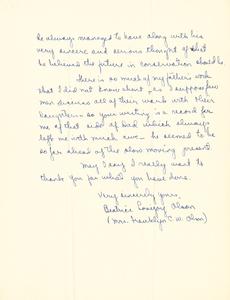 he always managed to have along with his
very sincere and serious thought of what
he believed the future in conservation should be.
There is so much of my father's work
that I did not know about, as I suppose few
men discuss all of their work with their
daughters - so your writing is a record for
me of that side of Dad which always
left me with much awe. He seemed to be
so far ahead of the slow moving present.
May I say I really want to
thank you for what you have done.
Very sincerely yours,
Beatrice Olson
(Mrs. Franklyn C. W. Olson)